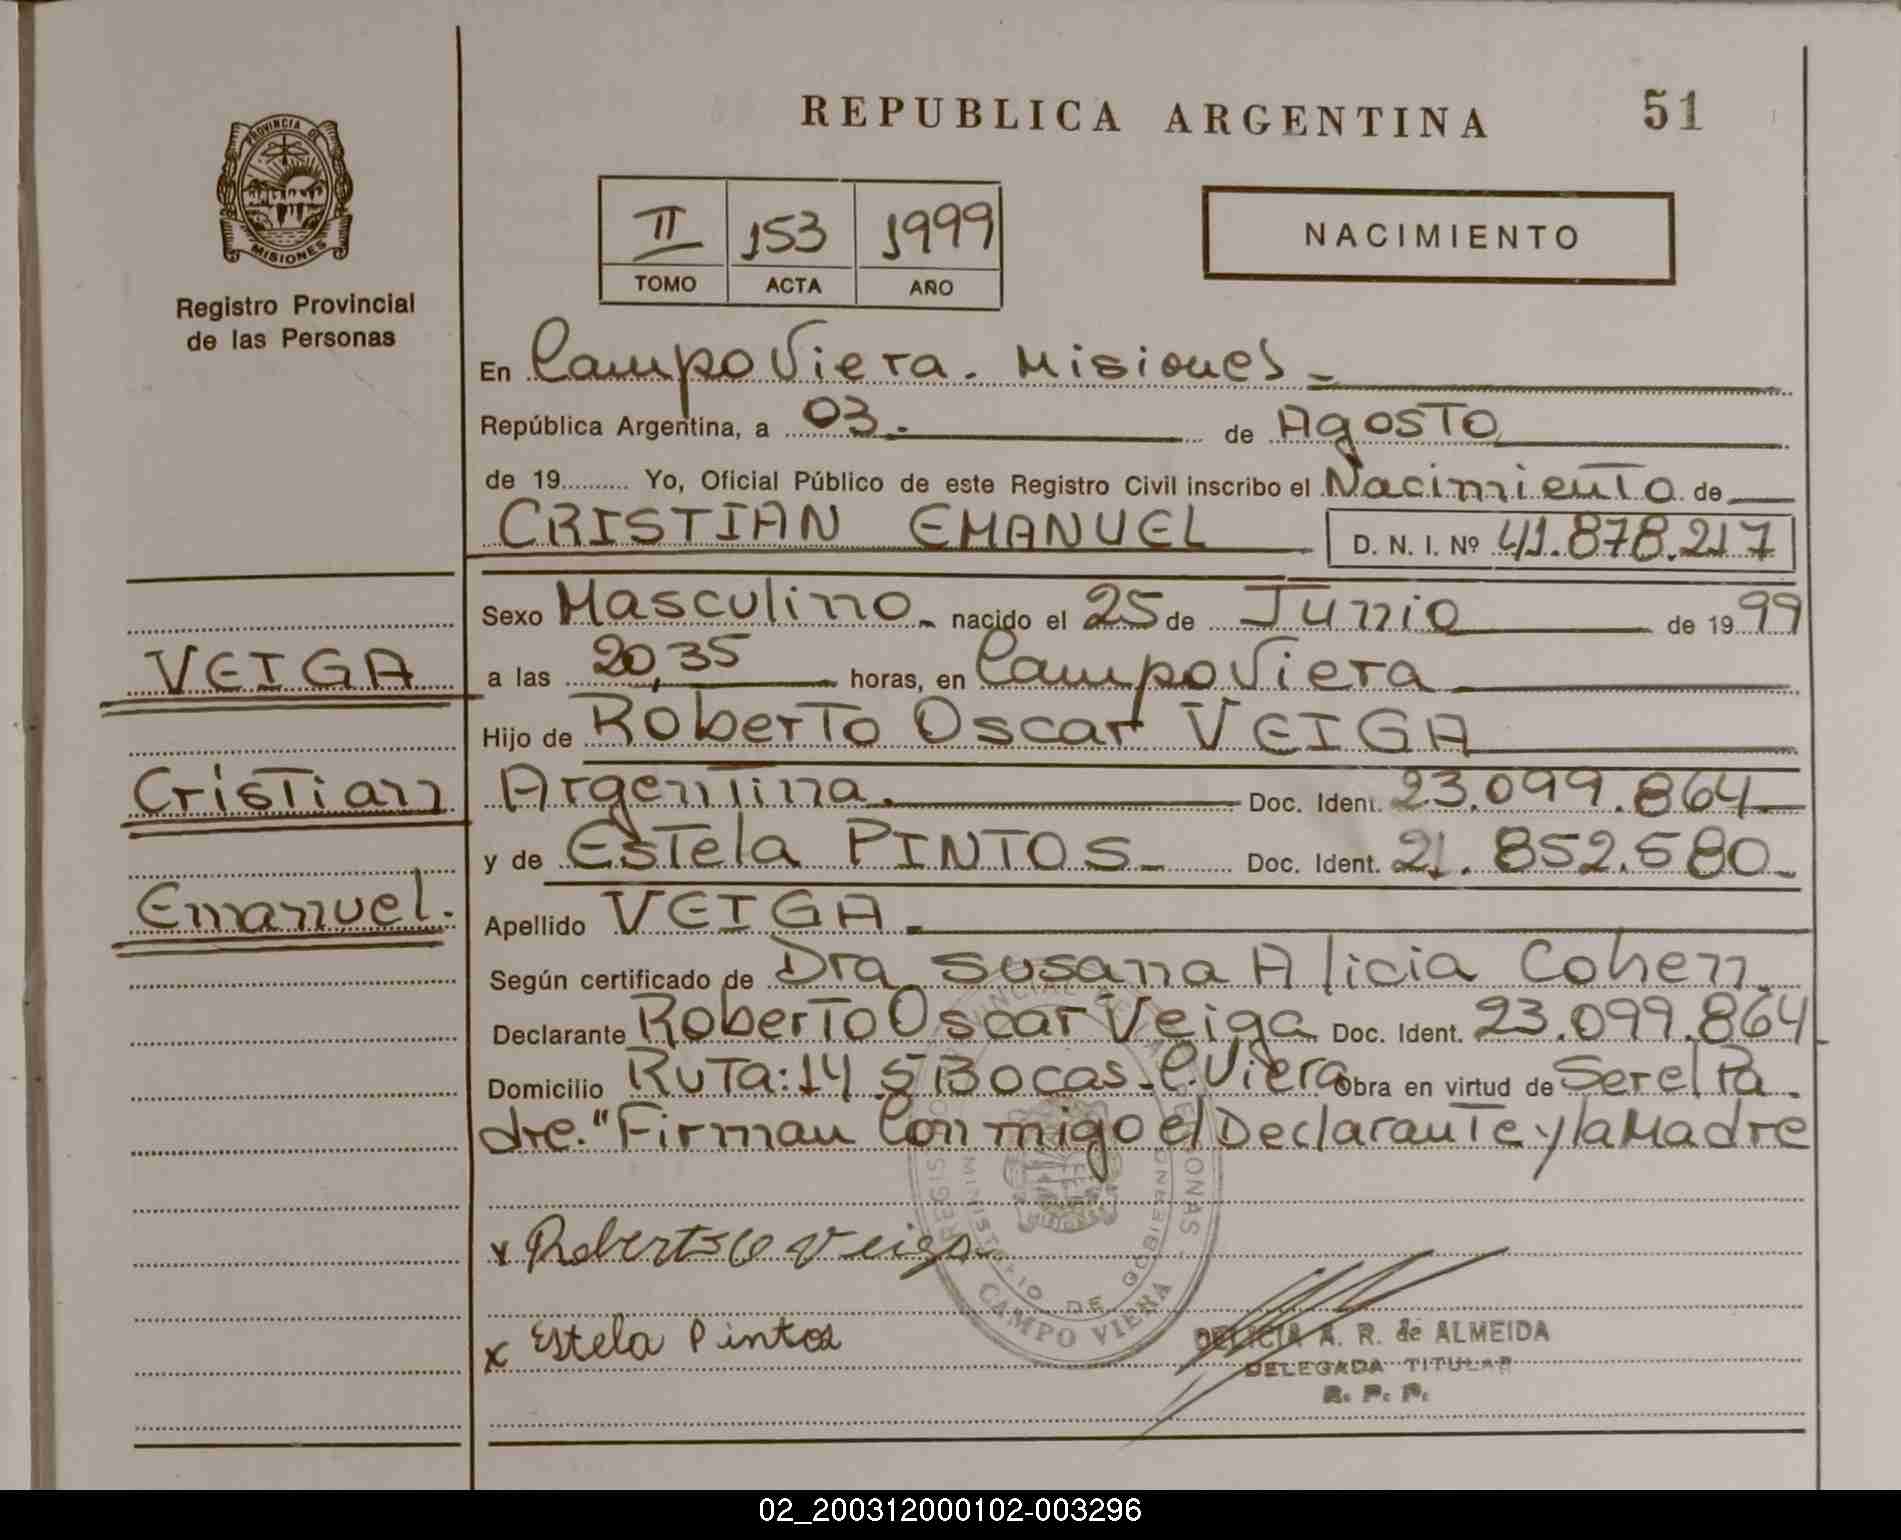 REPUBLICA ARGENTINA
51
PROVINCIA DE
MISIONES
Registro Provincial
de las Personas
II 153 1999
TOMO ACTA AÑO
NACIMIENTO
En Campo Viera. Misiones
República Argentina, a 03. de Agosto
de 19.......... Yo, Oficial Público de este Registro Civil inscribo el Nacimiento de
CRISTIAN EMANUEL D. N. I. Nº 41.878.217
Sexo Masculino nacido el 25 de Junio de 1999
a las 20,35 horas, en Campo Viera
Hijo de Roberto Oscar VEIGA
Argentina. Doc. Ident. 23.099.864
y de Estela PINTOS Doc. Ident. 21.852.580
Apellido VEIGA
Según certificado de Dra Susana Alicia Cohen
Declarante Roberto Oscar Veiga Doc. Ident. 23.099.864
Domicilio Ruta:14 S Bocas-C.Viera Obra en virtud de Ser el Pa
dre." Firman Conmigo el Declarante y la Madre
VEIGA
Cristian
Emanuel.
x Roberto O Veiga
x Estela Pintos
MINISTERIO DE GOBIERNO
CAMPO VIERA
DELICIA A. R. de ALMEIDA
DELEGADA TITULAR
R. P. P.
02_200312000102-003296